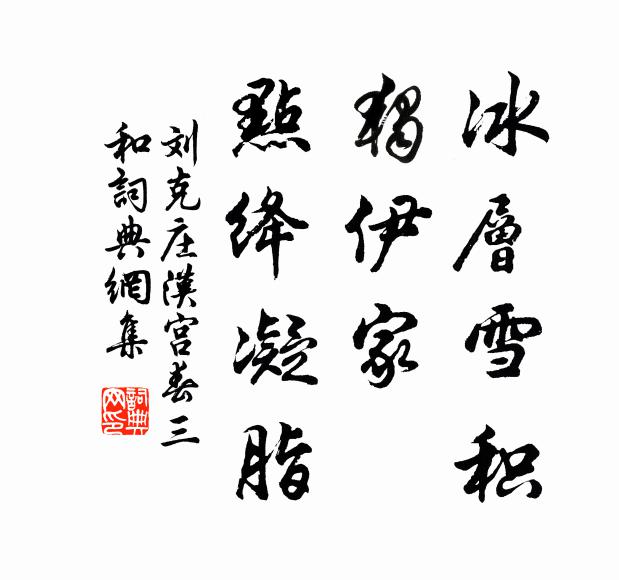 冰層雪积
獨伊家
點绛凝脂
刘克庄漢宫春三
和詞典網集
詞典网印